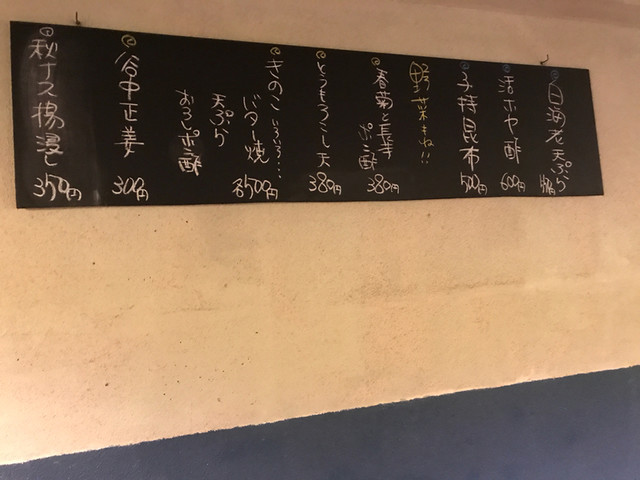 白海老天ぷら
活ホヤ酢 600円
子持昆布 500円
野菜もね!!
春菊と長芋
ポン酢 380円
とうもろこし天 380円
きのこいろいろ…
バター焼 各500円
天ぷら
おろしポン酢
谷中生姜 300円
秋ナス揚浸し 350円